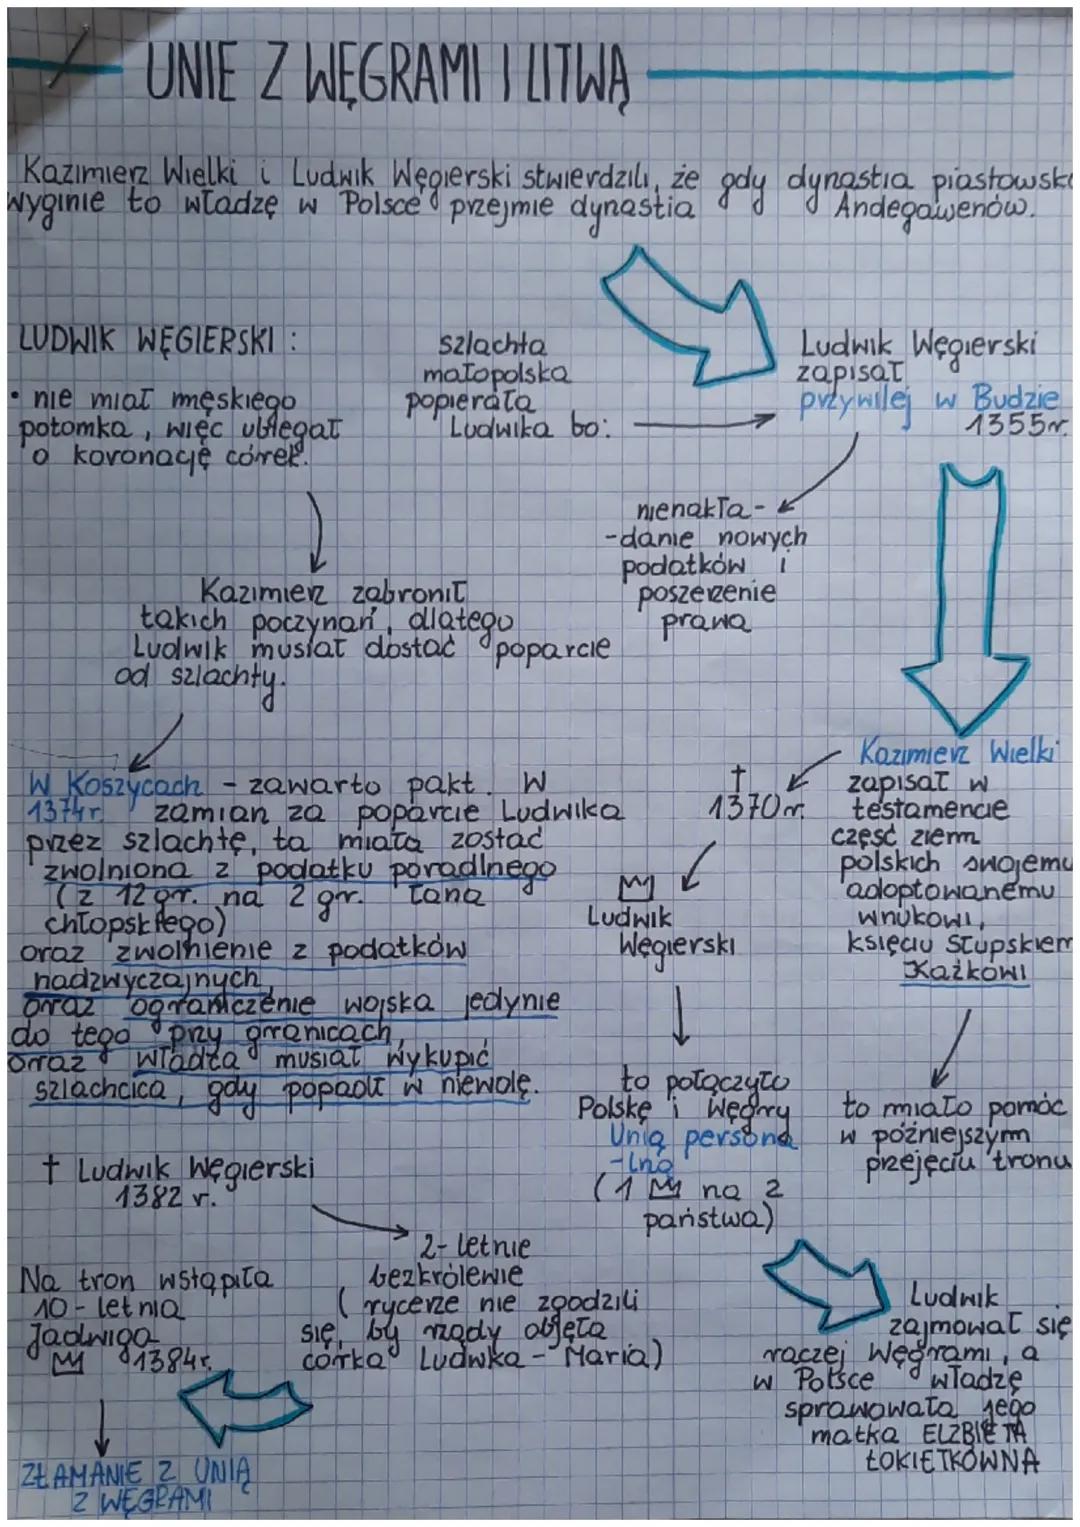 UNIE Z WĘGRAMI I LITWĄ
Kazimierz Wielki i Ludwik Węgierski stwierdzili, że gdy dynastia piastowska
wyginie to władzę w Polsce przejmie dynastia Andegawenów.
LUDWIK WĘGIERSKI :
• nie miał męskiego
potomka, więc ubiegał
o koronację córek.
szlachta
małopolska
popierała
Ludwika bo:
Ludwik Węgierski
zapisał
przywilej w Budzie
1355r.
nienakła-
-danie nowych
podatków i
poszerzenie
prawa
Kazimierz zabronił
takich poczynań, dlatego
Ludwik musiał dostać poparcie
od szlachty.
W Koszycach - zawarto pakt. W
1374r. zamian za poparcie Ludwika
przez szlachtę, ta miała zostać
zwolniona z podatku poradlnego
(z 12 gr. na 2 gr. łana
chłopskiego)
oraz zwolnienie z podatków
nadzwyczajnych,
oraz ograniczenie wojska jedynie
do tego przy granicach,
oraz władza musiał wykupić
szlachcica, gdy popadł w niewolę.
†
1370r.
Kazimierz Wielki
zapisał w
testamencie
część ziem
polskich swojemu
adoptowanemu
wnukowi,
księciu Słupskiem
Kaźkowi
Ludwik
Węgierski
to połączyło
Polskę i Węgry
Unią persona
-lną
(1 na 2
państwa)
to miało pomóc
w późniejszym
przejęciu tronu
† Ludwik Węgierski
1382 r.
2-letnie
bezkrólewie
(rycerze nie zgodzili
się, by rządy objęła
córka Ludwka - Maria)
Na tron wstąpiła
10-letnia
Jadwiga
1384r.
Ludwik
zajmował się
raczej Węgrami, a
w Polsce władzę
sprawowała jego
matka ELŻBIETA
ŁOKIETKÓWNA
ZŁAMANIE Z UNIĄ
Z WĘGRAMI